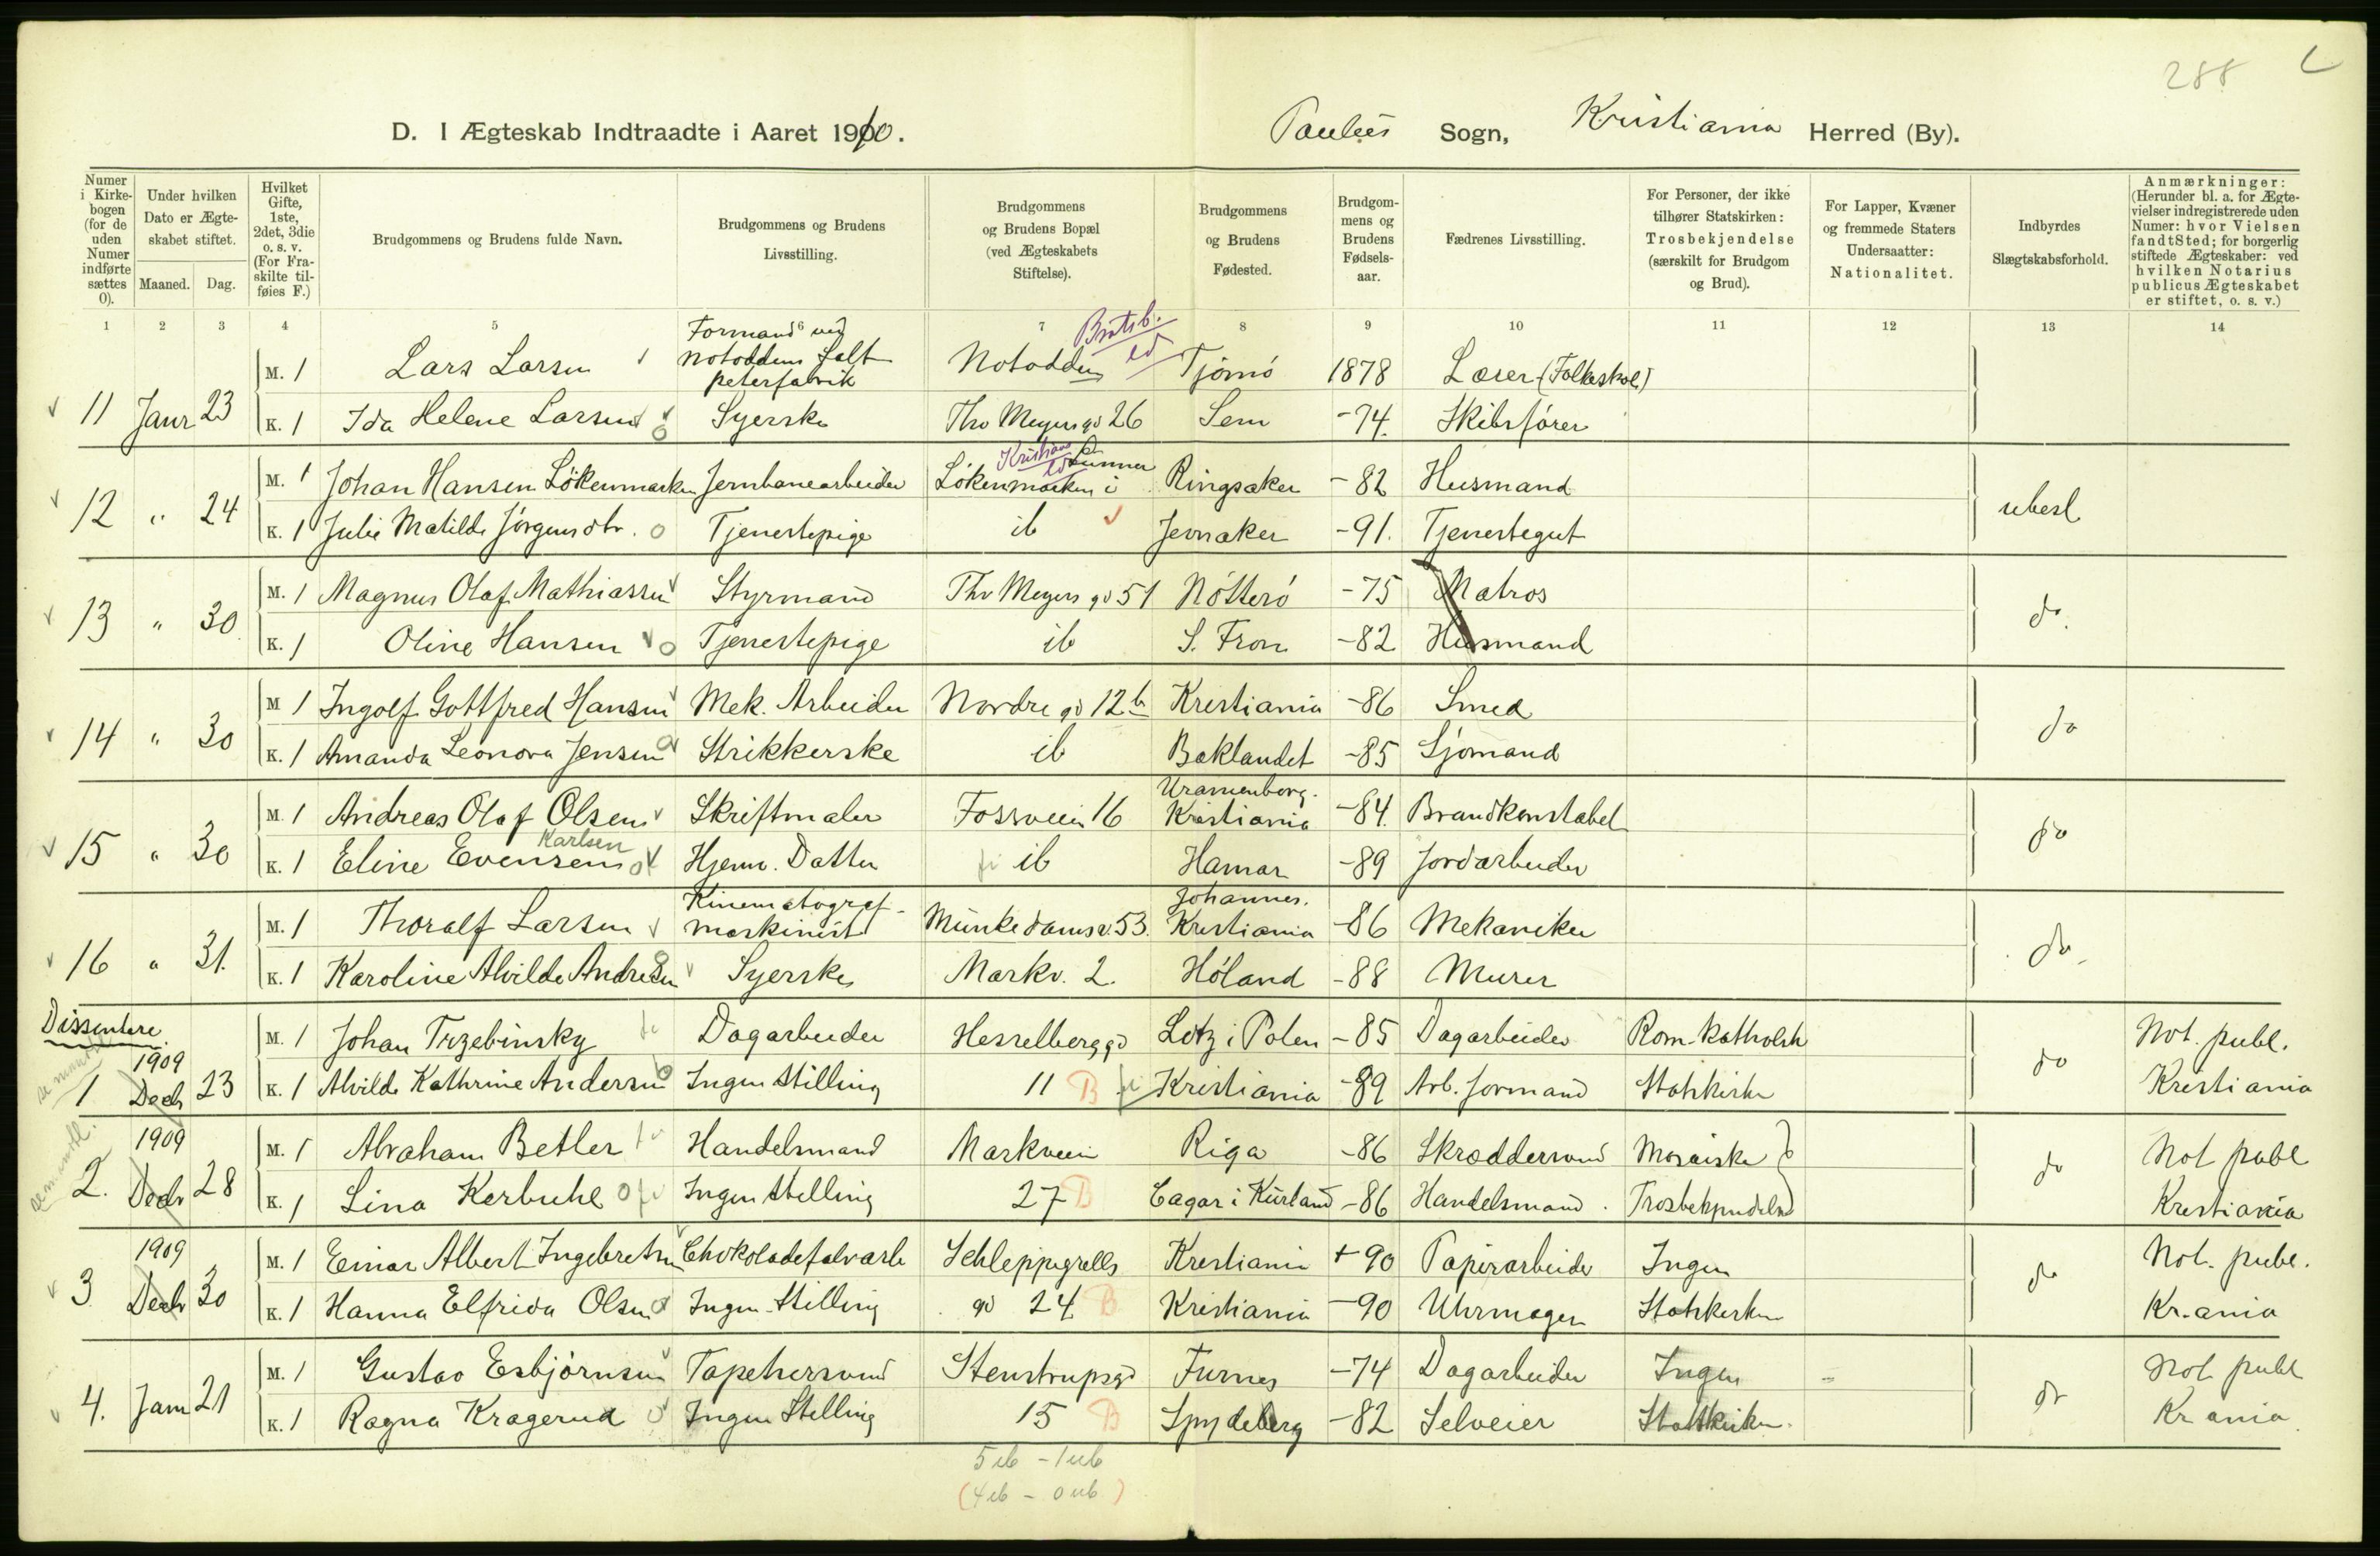 288
D. I Ægteskab Indtraadte i Aaret 1910.
Paulus Sogn, Kristiania Herred (By).
Numer i Kirkebogen (for de uden Numer indførte sættes 0).
Under hvilken Dato er Ægteskabet stiftet.
Maaned. Dag.
Hvilket Gifte, 1ste, 2det, 3die o. s. v. (For Fraskilte tilføies F.)
Brudgommens og Brudens fulde Navn.
Brudgommens og Brudens Livsstilling.
Brudgommens og Brudens Bopæl (ved Ægteskabets Stiftelse).
Brudgommens og Brudens Fødested.
Brudgommens og Brudens Fødselsaar.
Fædrenes Livsstilling.
For Personer, der ikke tilhører Statskirken: Trosbekjendelse (særskilt for Brudgom og Brud).
For Lapper, Kvæner og fremmede Staters Undersaatter: Nationalitet.
Indbyrdes Slægtskabsforhold.
Anmærkninger: (Herunder bl. a. for Ægtevielser indregistrerede uden Numer: hvor Vielsen fandt Sted; for borgerlig stiftede Ægteskaber: ved hvilken Notarius publicus Ægteskabet er stiftet, o. s. v.)
1 2 3 4 5 6 7 8 9 10 11 12 13 14
11 Janr 23
M. 1 Lars Larsen Formand ved Notoddens Saltpeterfabrik Notodden Bratsb. Tjømø 1878 Lærer (Folkeskole)
K. 1 Ida Helene Larsen Syerske Thv Meyers gd 26 Sem -74. Skibsfører
12 " 24
M. 1 Johan Hansen Løkenmarken Jernbanearbeider Løkenmarken i Lunner Kristians Ringsaker -82 Husmand
K. 1 Julie Matilde Jørgensdtr. Tjenestepige ib Jevnaker -91. Tjenestegut
ubesl
13 " 30
M. 1 Magnus Olaf Mathiassen Styrmand Thv Meyers gd 51 Nøtterø -75 Matros
K. 1 Oline Hansen Tjenestepige ib S. Fron -82 Husmand
do.
14 " 30
M 1 Ingolf Gottfred Hansen Mek. Arbeider Nordre gd 12 b Kristiania -86 Smed
K. 1 Amanda Leonora Jensen Strikkerske ib Baklandet -85 Sjømand
do
15 " 30
M. 1 Andreas Olaf Olsen Skriftmaler Fossveien 16 Uranienborg. Kristiania -84. Brandkonstabel
K. 1 Eline Evensen Karlsen Hjemv. Datter ib Hamar -89 Jordarbeider
do
16 " 31.
M. 1 Thoralf Larsen Kinematografmaskinist Munkedamsv. 53. Johannes. Kristiania -86 Mekaniker
K. 1 Karoline Alvilde Andresen Syerske Markv. 2. Høland -88 Murer
do
Dissentere
1 1909 Decbr 23
M. 1 Johan Trzebinsky Dagarbeider Hesselberg gd Lotz i Polen -85 Dagarbeider Rom. Katholsk Not. publ.
K. 1 Alvilde Kathrine Andersen Ingen Stilling 11 B Kristiania -89 Arb. formand Statskirken Kristiania
do
2. 1909 Decbr 28
M. 1 Abraham Betler Handelsmand Markveien Riga -86 Skræddersvend Mosaiske Not publ
K. 1 Lina Kerbuhl Ingen Stilling 27 B Cagar i Kurland -86 Handelsmand Trosbekjendelse Kristiania
do
3 1909 Decbr 30
M. 1 Einar Albert Ingebretsen Chokoladefabrarb Schleppegrells Kristiania +90 Papirarbeider Ingen Not. publ.
K. 1 Hanna Elfrida Olsen Ingen Stilling gd 24 B Kristiania -90 Uhrmager Statskirken Kr.ania
do
4. Janr 21
M. 1 Gustav Esbjørnsen Tapetsersvend Stenstrupsgd Furnes -74 Dagarbeider Ingen Not publ
K. 1 Ragna Kragerud Ingen Stilling 15 B Spydeberg -82 Selveier Statskirken. Kr ania
do
5 ib - 1 ub
(4 ib - 0 ub)